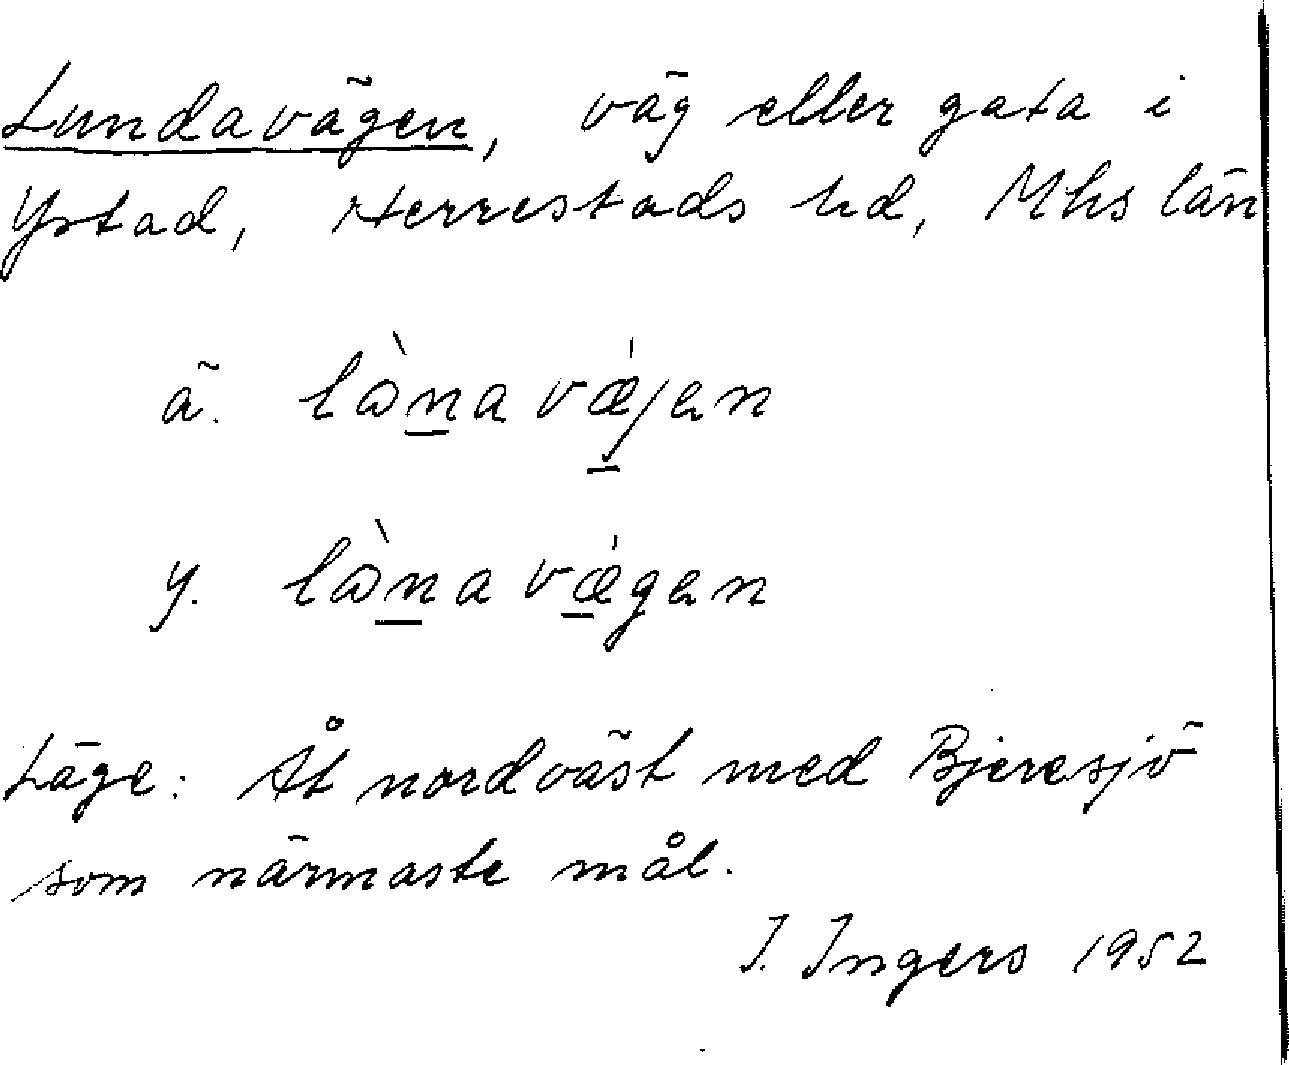 Lundavägen, väg eller gata i
Ystad, Herrestads hd, Mhs län
ä. lɷ̀na vǽjen
y. lɷ̀na vǽgen
Läge: Åt nordväst med Bjeresjö
som närmaste mål.
I. Ingers 1952